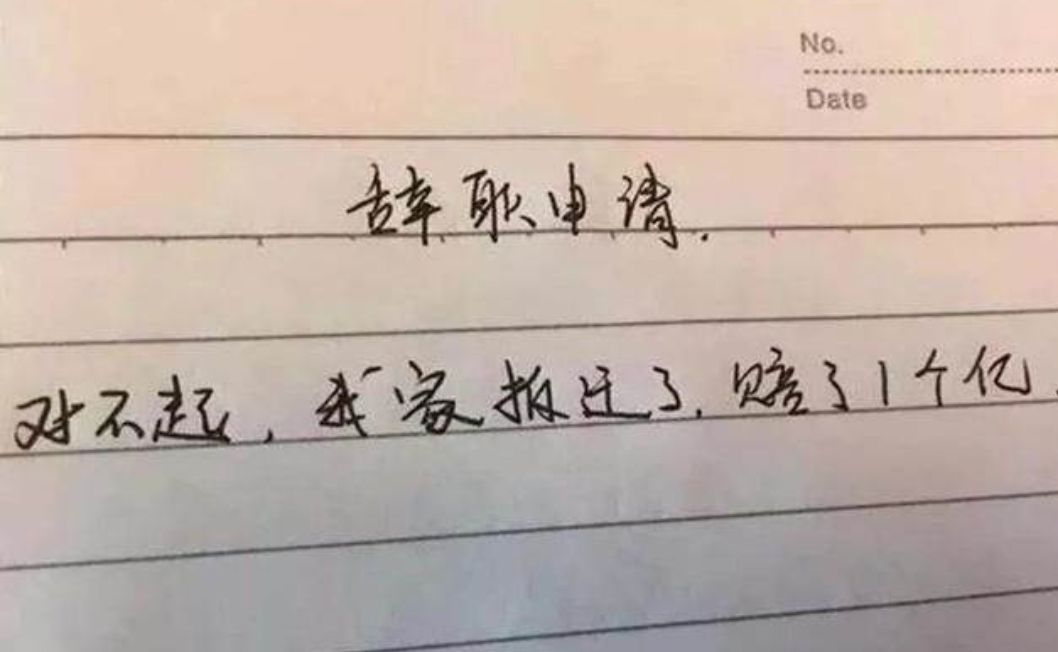 No.
Date
辞职申请.
对不起，我家拆迁了.赔了1个亿.